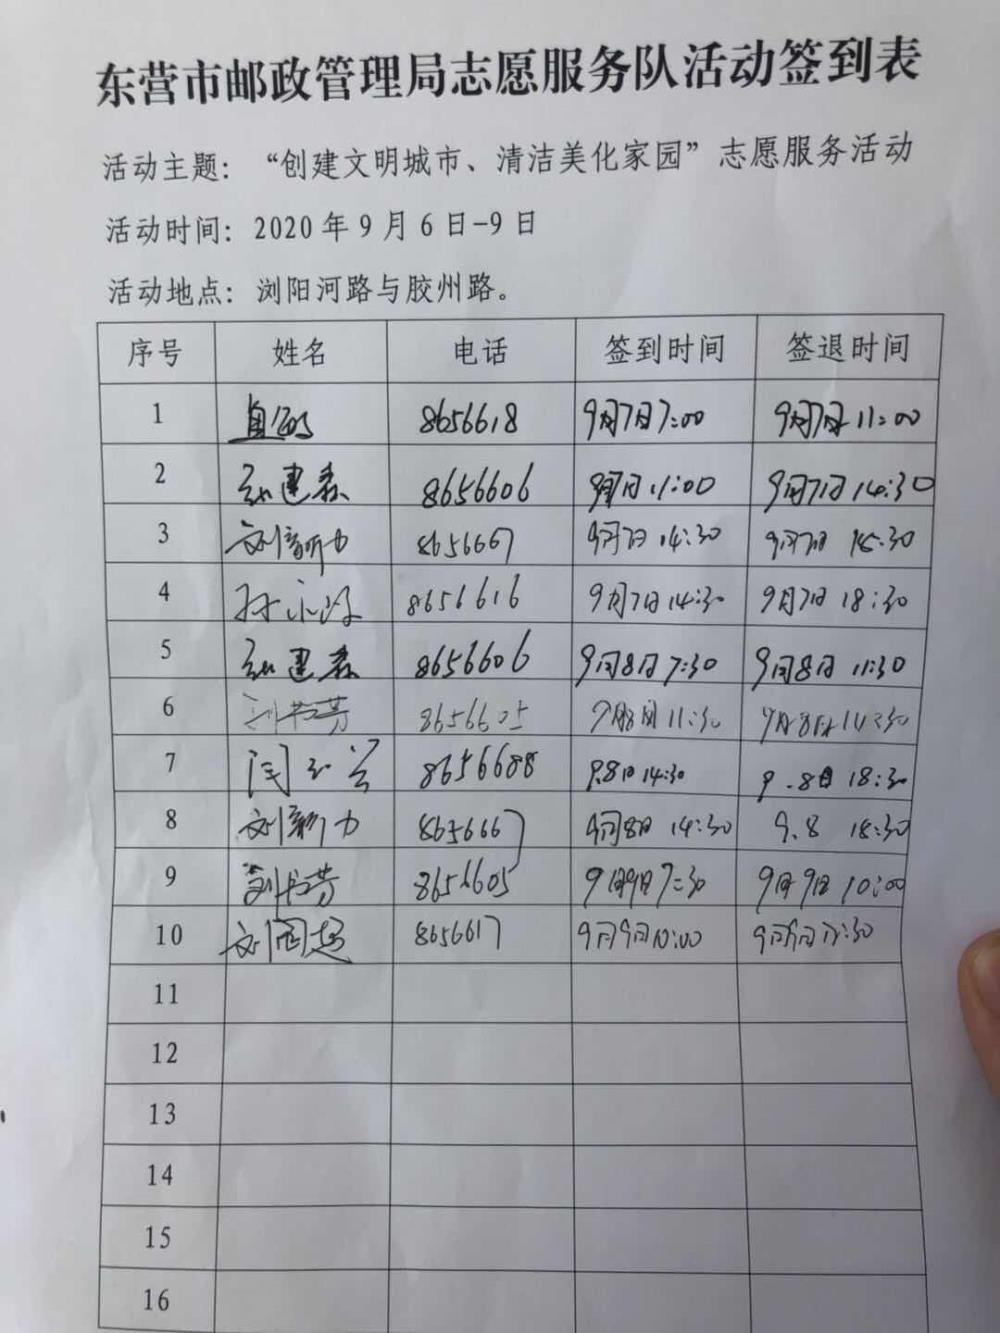 东营市邮政管理局志愿服务队活动签到表
活动主题：“创建文明城市、清洁美化家园”志愿服务活动
活动时间：2020年9月6日-9日
活动地点：浏阳河路与胶州路。
序号 姓名 电话 签到时间 签退时间
1 8656618 9月7日7:00 9月7日11:00
2 张建森 8656606 9月7日11:00 9月7日14:30
3 刘新力 8656667 9月7日14:30 9月7日18:30
4 孙永 8656616 9月7日14:30 9月7日18:30
5 张建森 8656606 9月8日7:30 9月8日11:30
6 刘书芳 8656605 9月8日11:30 9月8日14:30
7 闫 8656688 9.8日14:30 9.8日18:30
8 刘新力 8656667 9月8日14:30 9.8 18:30
9 刘书芳 8656605 9月9日7:30 9月9日10:00
10 刘国超 8656617 9月9日10:00 9月9日 :30
11
12
13
14
15
16